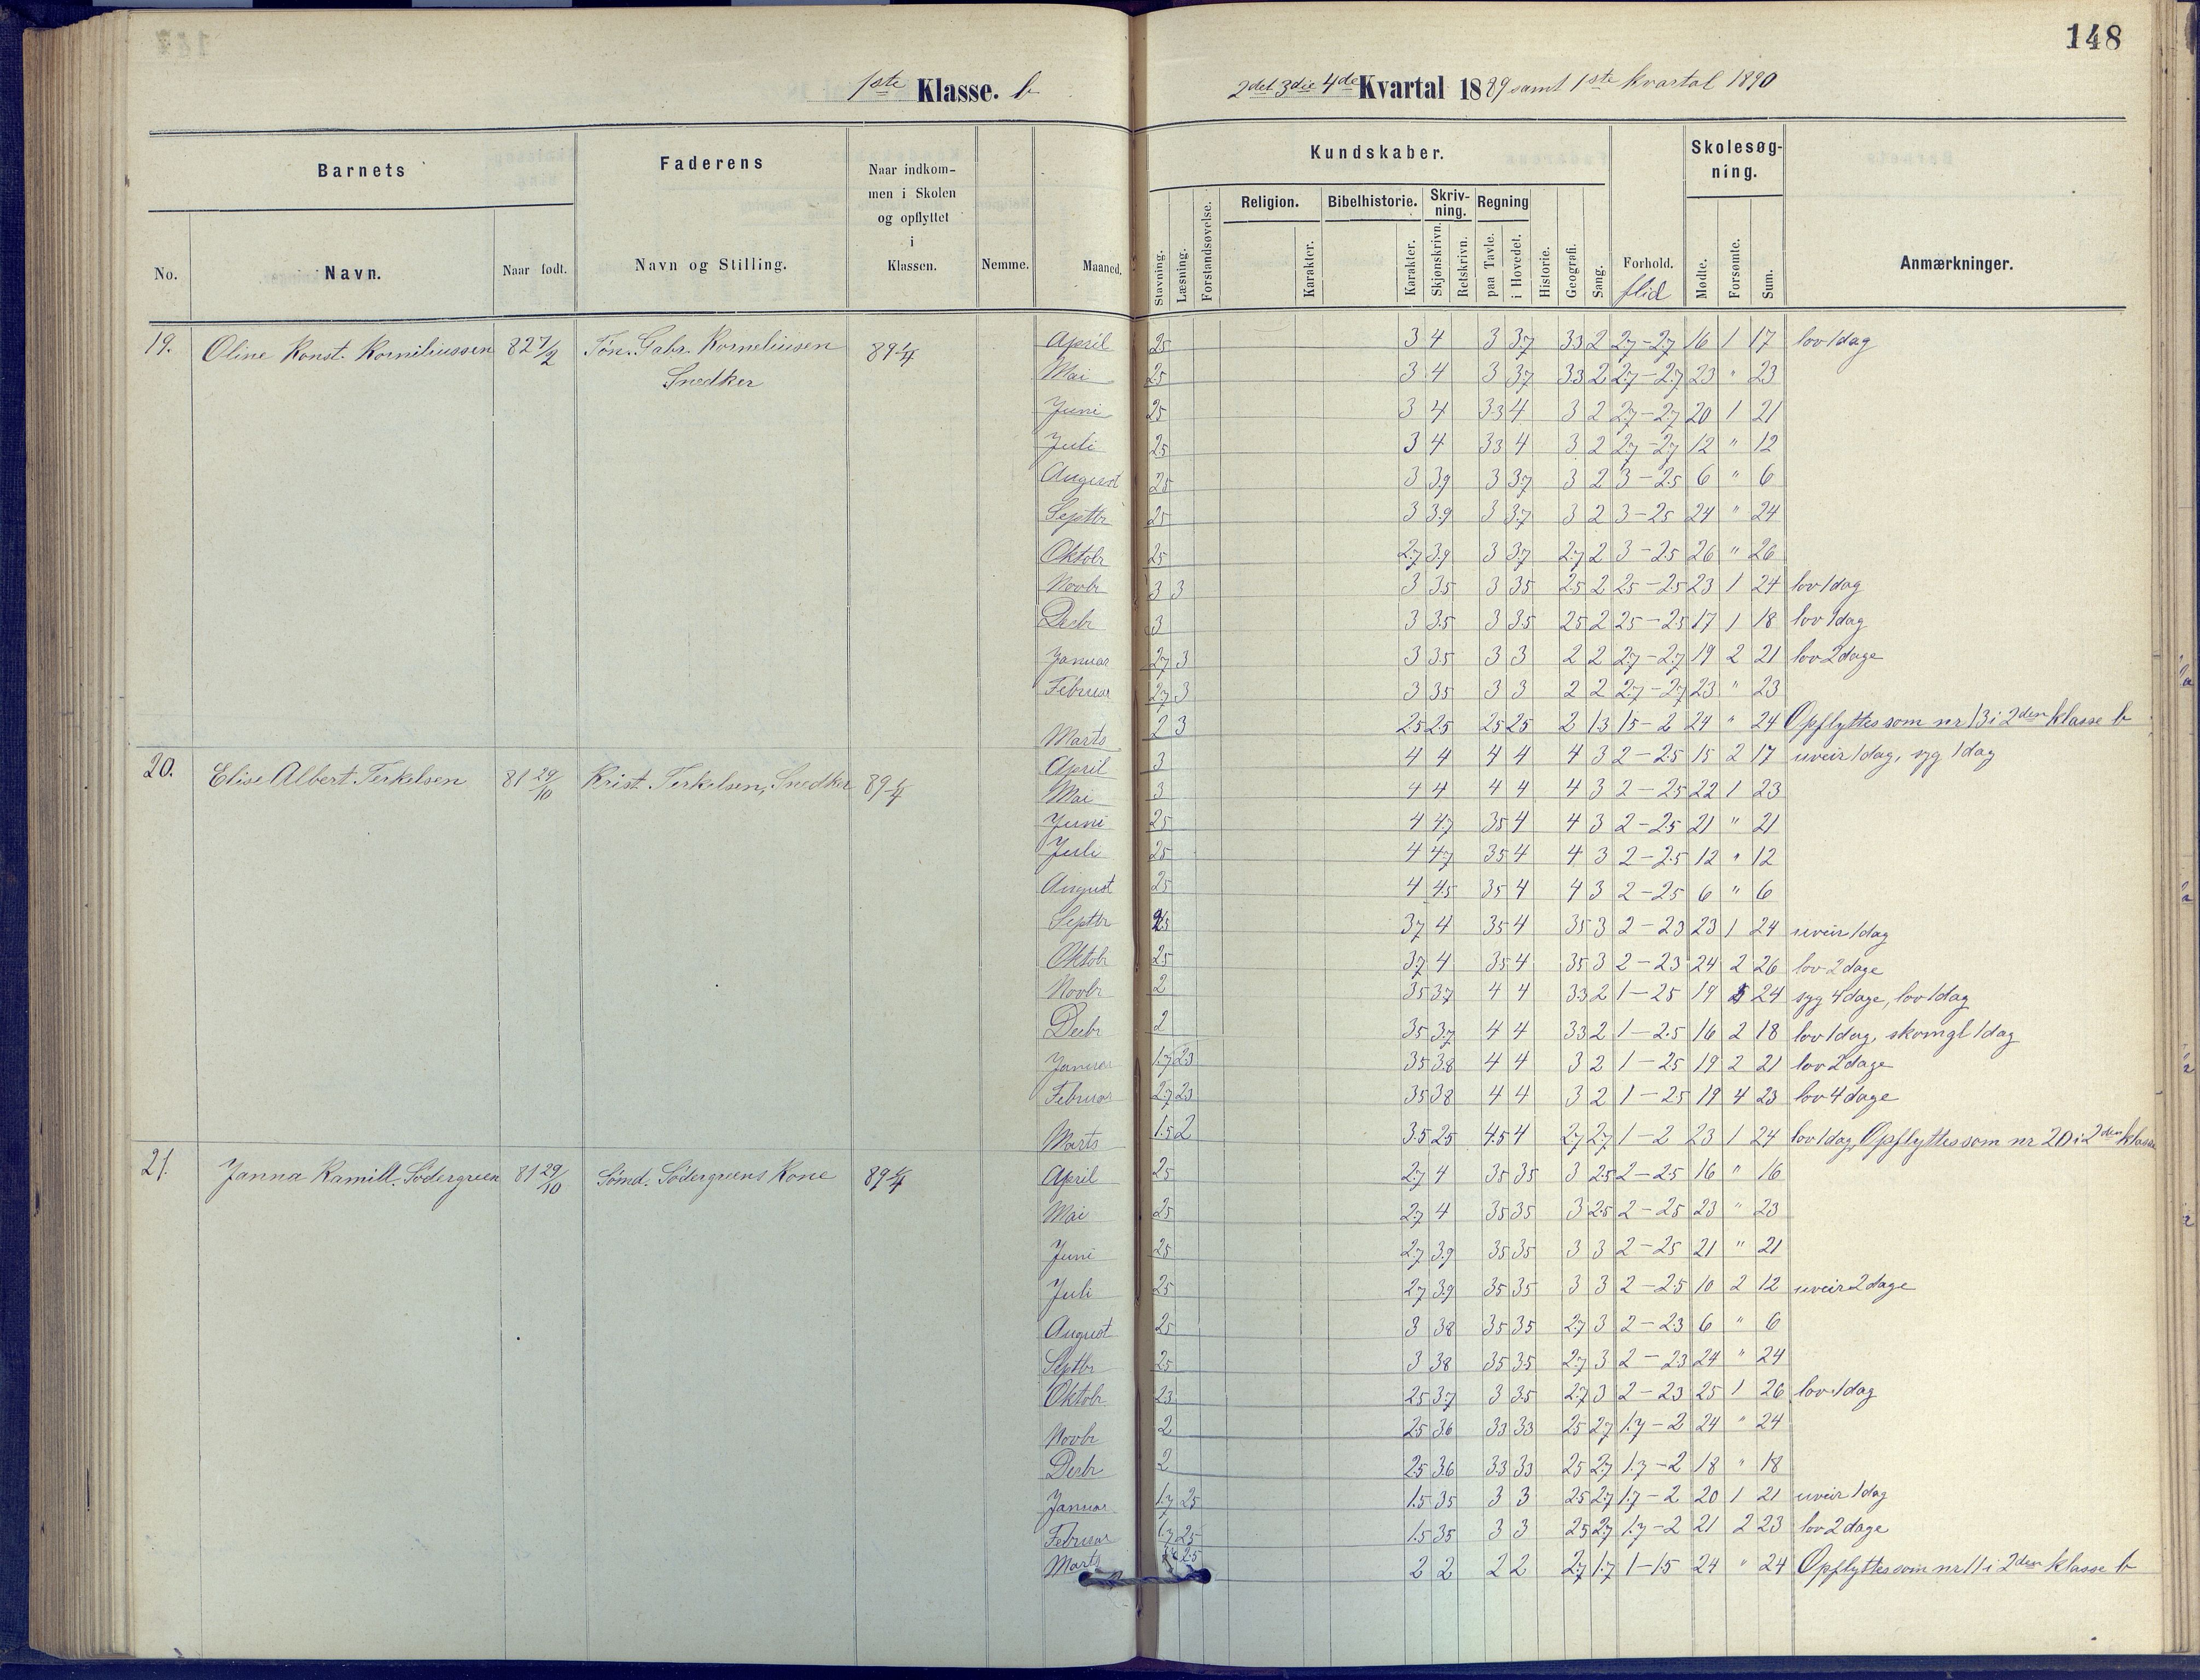 148
1ste Klasse. b
2det 3die 4de Kvartal 1889 samt 1ste kvartal 1890
Barnets
Faderens
Naar indkom-
men i Skolen
og opflyttet
i
Klassen.
Nemme.
Maaned.
No.
Navn.
Naar født.
Navn og Stilling.
Kundskaber.
Stavning.
Læsning.
Forstandsøvelse.
Religion.
Karakter.
Bibelhistorie.
Karakter.
Skriv-
ning.
Skjønskrivn.
Retskrivn.
Regning
paa Tavle.
i Hovedet.
Historie.
Geografi.
Sang.
Forhold.
flid
Skolesøg-
ning.
Mødte.
Forsømte.
Sum.
Anmærkninger.
19. Oline Konst. Korniliussen 82 7/2 Tøn. Gabr. Korneliusen 89 1/4 April 25 3 4 3 3.7 33 2 2.7-2.7 16 1 17 lov 1 dag
Snedker Mai 25 3 4 3 37 33 2 27-2.7 23 " 23
Juni 25 3 4 33 4 3 2 27-27 20 1 21
Juli 25 3 4 33 4 3 2 27-27 12 " 12
August 25 3 39 3 37 3 2 3-2.5 6 " 6
Septbr 25 3 39 3 37 3 2 3-25 24 " 24
Oktobr 25 27 39 3 37 27 2 3-25 26 " 26
Novbr 3 3 3 35 3 35 25 2 25-25 23 1 24 lov 1 dag
Decbr 3 3 35 3 35 25 2 25-25 17 1 18 lov 1 dag
Januar 27 3 3 35 3 3 2 2 27-27 19 2 21 lov 2 dage
Februar 27 3 3 35 3 3 2 2 27-27 23 " 23
Marts 2 3 25 25 25 25 2 13 15-2 24 " 24 Opflyttes som nr 13 i 2den klasse b
20. Elise Albert. Terkelsen 81 29/10 Krist. Terkelsen, Snedker 89 1/4 April 3 4 4 4 4 4 3 2-25 15 2 17 uveir 1 dag, syg 1 dag
Mai 3 4 4 4 4 4 3 2-25 22 1 23
Juni 25 4 47 35 4 4 3 2-25 21 " 21
Juli 25 4 47 35 4 4 3 2-25 12 " 12
August 25 4 45 35 4 4 3 2-25 6 " 6
Septbr 25 37 4 35 4 35 3 2-23 23 1 24 uveir 1 dag
Oktobr 25 37 4 35 4 35 3 2-23 24 2 26 lov 2 dage
Novbr 2 35 37 4 4 33 2 1-25 19 5 24 syg 4 dage, lov 1 dag
Decbr 2 35 37 4 4 33 2 1-25 16 2 18 lov 1 dag, skomgl 1 dag
Januar 17 23 35 38 4 4 3 2 1-25 19 2 21 lov 2 dage
Februar 27 23 35 38 4 4 3 2 1-25 19 4 23 lov 4 dage
Marts 1.5 2 3.5 25 4.5 4 27 27 1-2 23 1 24 lov 1 dag, Opflyttes som nr 20 i 2den klasse
21. Janna Kamill. Södergreen 81 29/10 Sømd. Södergreens Kone 89 1/4 April 25 27 4 35 35 3 25 2-25 16 " 16
Mai 25 27 4 35 35 3 25 2-25 23 " 23
Juni 25 27 39 35 35 3 3 2-25 21 " 21
Juli 25 27 39 35 35 3 3 2-25 10 2 12 uveir 2 dage
August 25 3 38 35 35 27 3 2-23 6 " 6
Septbr 25 3 38 35 35 27 3 2-23 24 " 24
Oktobr 23 25 37 3 35 27 3 2-23 25 1 26 lov 1 dag
Novbr 2 25 36 33 33 25 27 17-2 24 " 24
Decbr 2 25 36 33 33 25 27 17-2 18 " 18
Januar 17 25 15 35 3 3 25 27 17-2 20 1 21 uveir 1 dag
Februar 17 25 1.5 35 3 3 25 27 17-2 21 2 23 lov 2 dage
Marts 25 2 2 2 2 27 17 1-15 24 " 24 Opflyttes som nr 11 i 2den klasse b